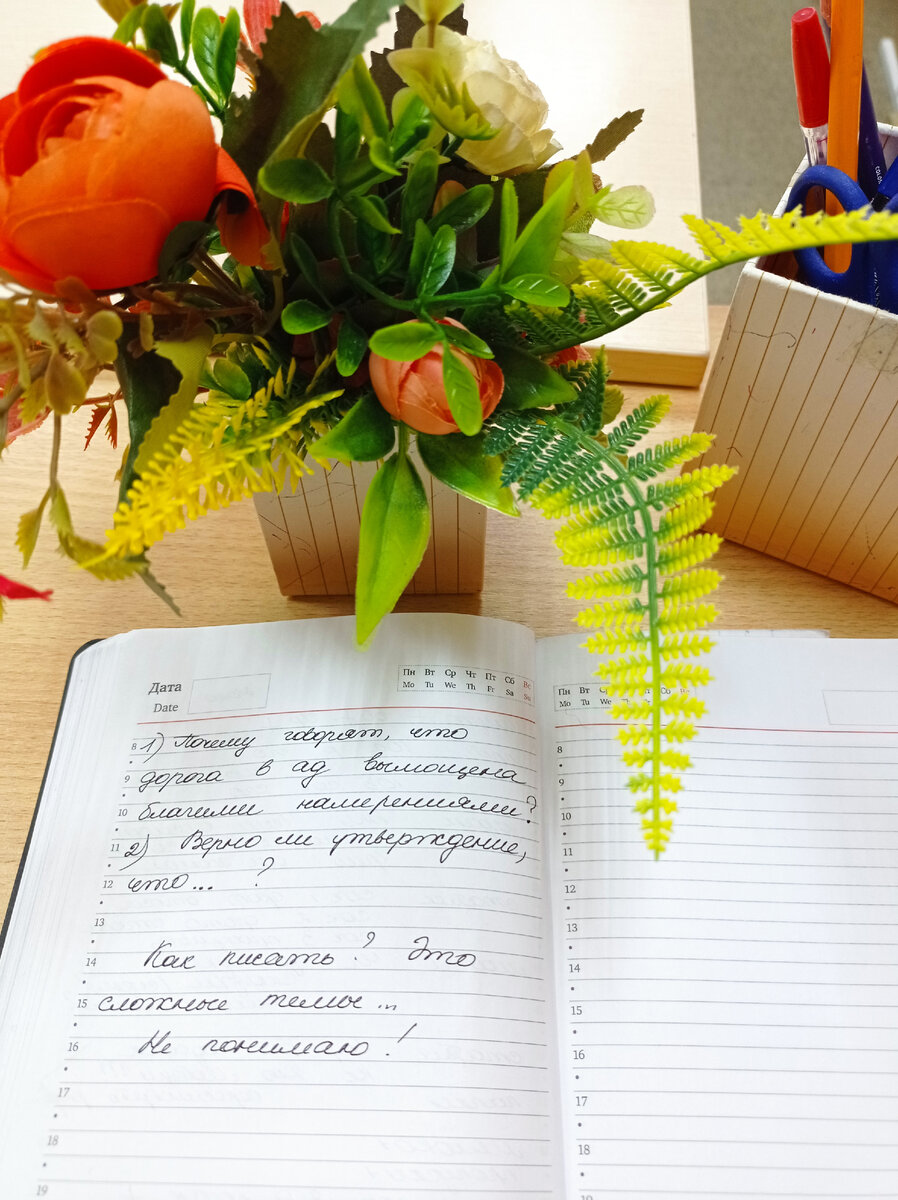 COLOR
Дата
Date
Пн Вт Ср Чт Пт Сб Вс
Mo Tu We Th Fr Sa Su
8 1) Почему говорят, что
9 дорога в ад вымощена
10 благими намерениями?
11 2) Верно ли утверждение,
12 что... ?
13
14 Как писать? Это
15 сложные темы...
16 Не понимаю!
17
18
19
Пн Вт
Mo Tu We
8
9
10
11
12
13
14
15
16
17
18